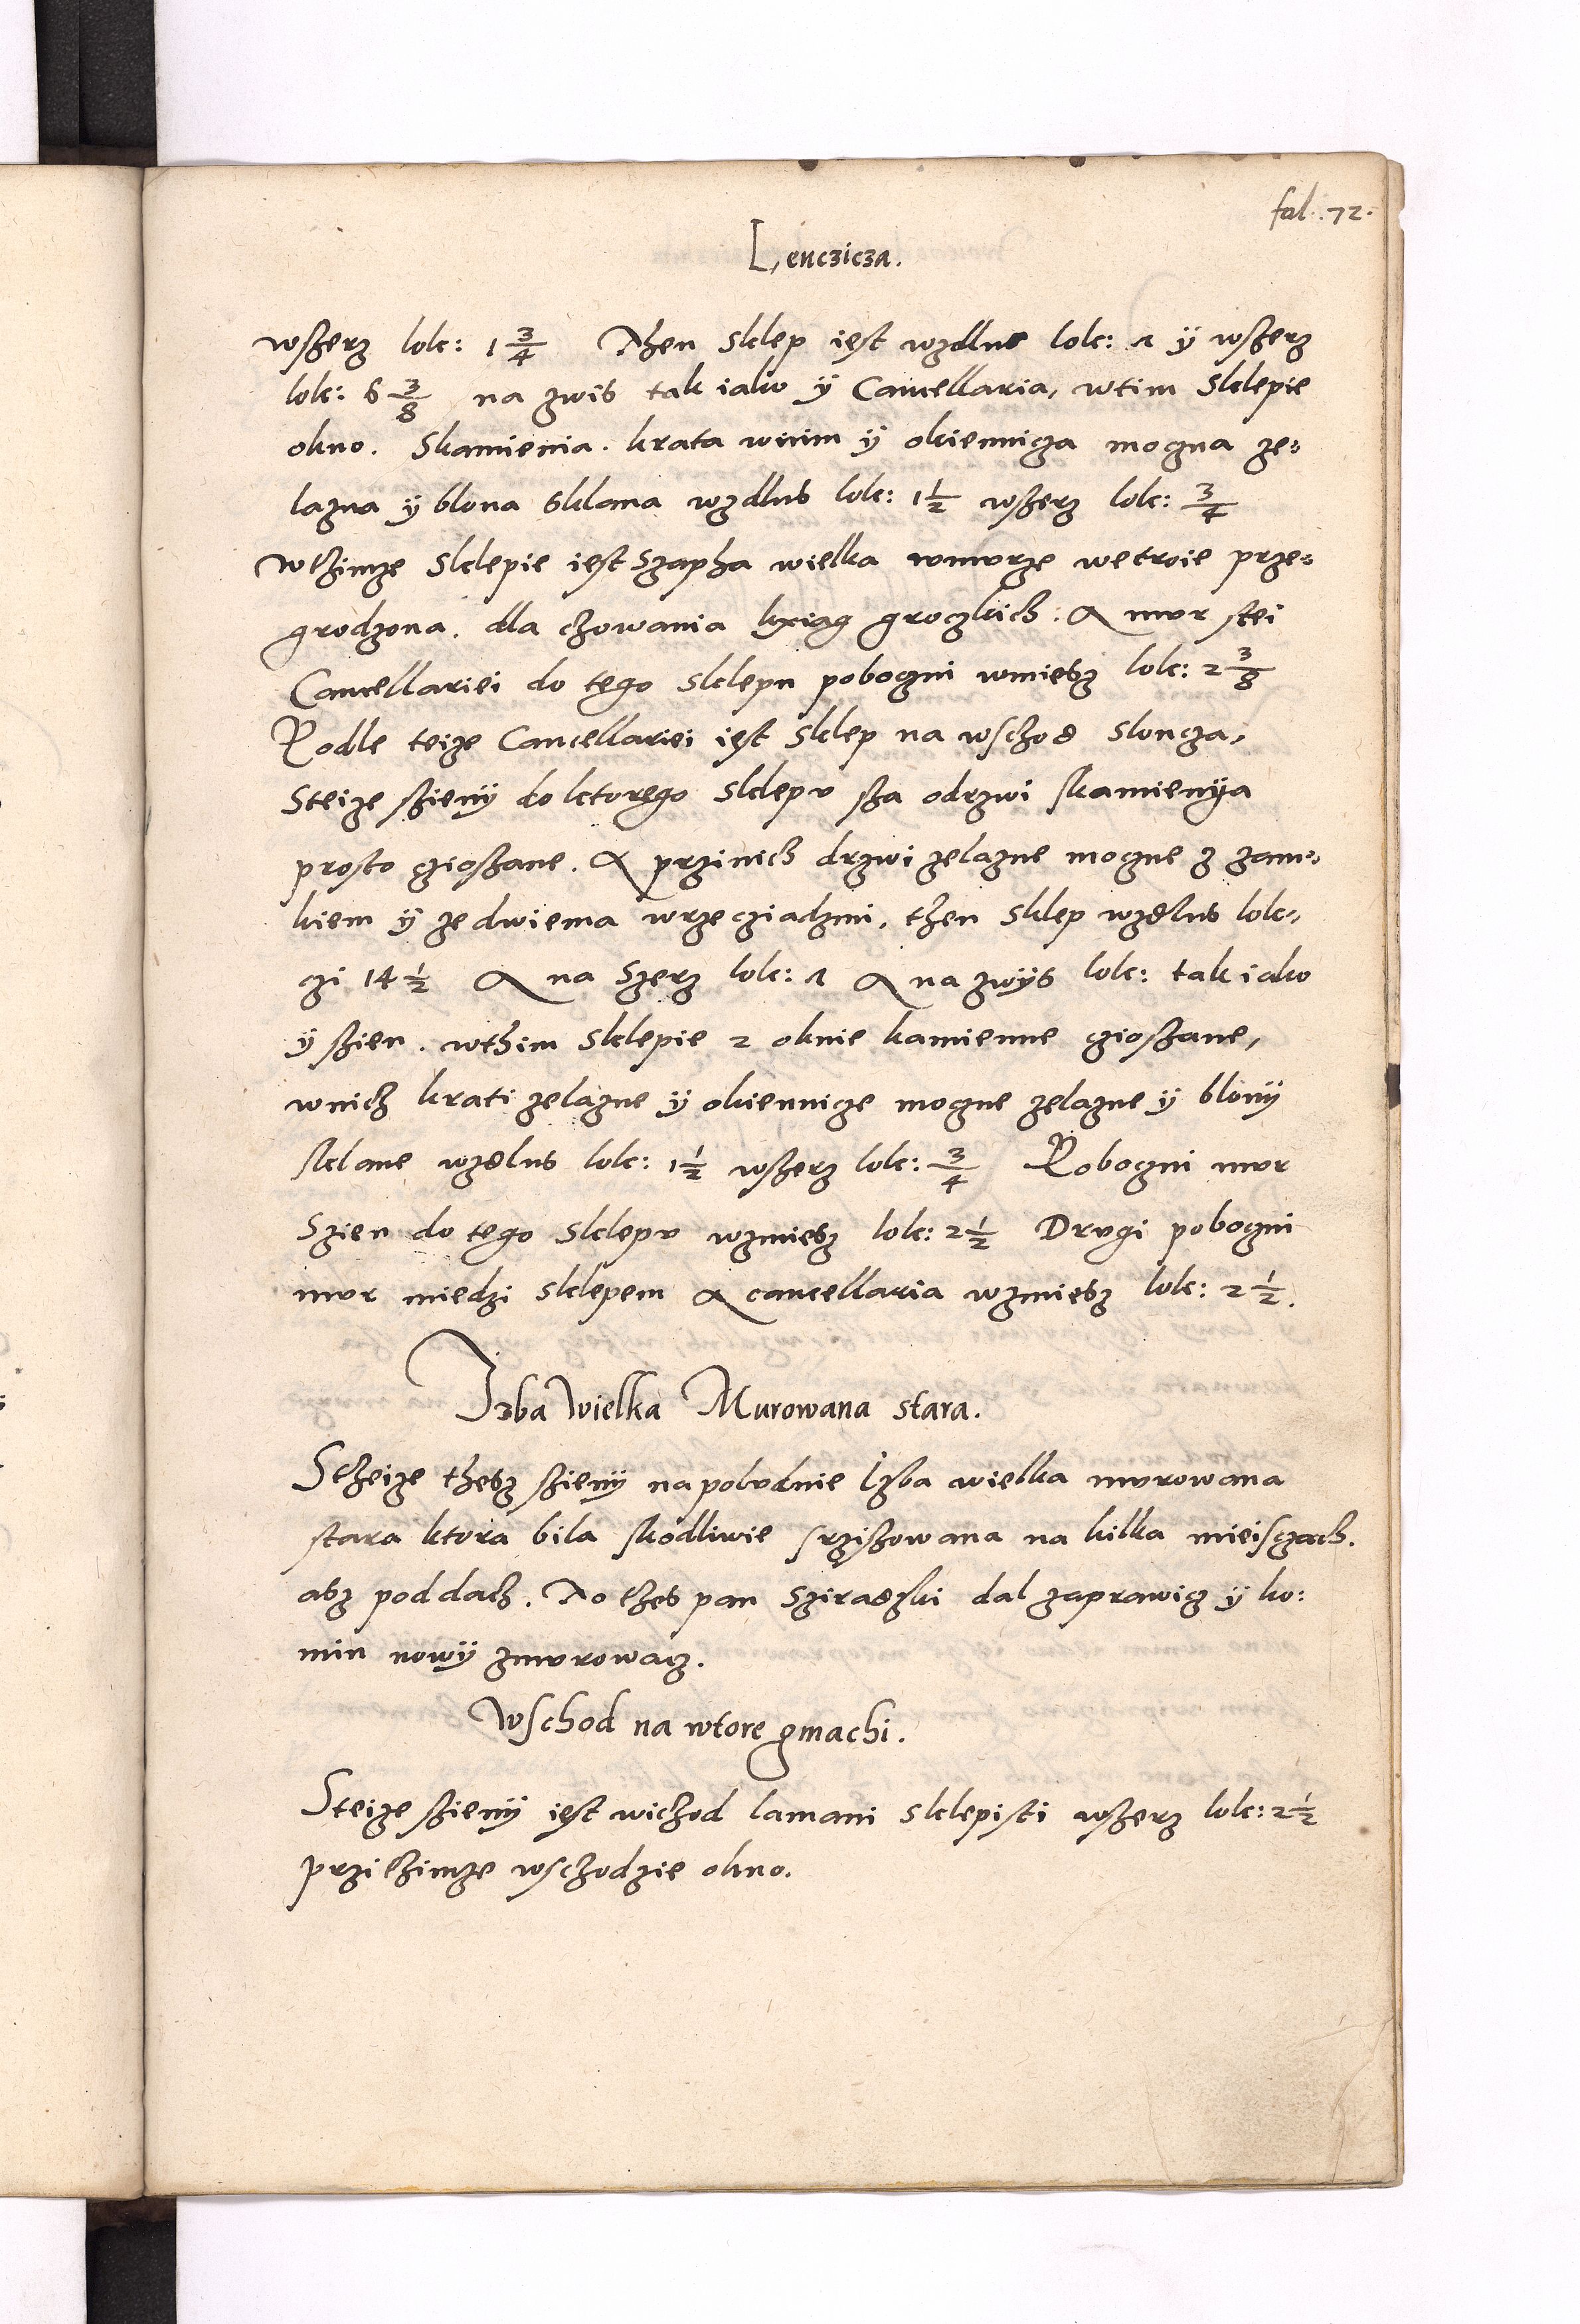 fol. 72.
Lenczicza.
wszerz lok: 1 3/4 Then Sklep iest wzdlus lok: 7 y wszerz
lok: 6 3/8 na zwis tak iako ÿ Cancellaria, wtim Sklepie
okno. Skamienia. krata wnim ÿ okiennicza moczna ze-
lazna ÿ blona sklana wzdlus lok: 1 1/2 wszerz lok: 3/4
Wthimze Sklepie iest Szapha wielka wmvrze wetroie prze-
grodzona. dla chowania kxiag groczkich: A mvr stei
Cancellariei do tego Sklepu poboczni wmiesz lok: 2 3/8
Podle teize Cancellariei iest Sklep na wschod Sloncza,
Steize szienÿ do ktorego Sklepv sza odrzwi skamienÿa
prosto cziosane. A przinich drzwi zelazne moczne z zam-
kiem ÿ ze dwiema wrzecziadzmi, then Sklep wzdlus lok-
czi 14 1/2 A na Szerz lok: 7 A na zwÿs lok: tak iako
ÿ szien. wthim Sklepie 2 oknie kamienne cziosane,
wnich krati zelazne ÿ okiennicze moczne zelazne ÿ blonÿ
sklane wzdlus lok: 1 1/2 wszerz lok: 3/4 Poboczni mvr
Szien do tego Sklepv wzmiesz lok: 2 1/2 Drvgi poboczni
mvr miedzi Sklepem A cancellaria wzmiesz lok: 2 1/2.
Izba Wielka Murowana stara.
Stheize thesz szienÿ na polvdnie Izba wielka mvrowana
stara ktora bila skodliwie srziszowana na kilka mieisczach.
asz pod dach. To thes pan Sziradzki dal zaprawicz ÿ ko:
min nowÿ zmvrowacz.
Wschod na wtore gmachi.
Steize szienÿ iest wschod lamani Sklepisti wszerz lok: 2 1/2
przithimze wschodzie okno.